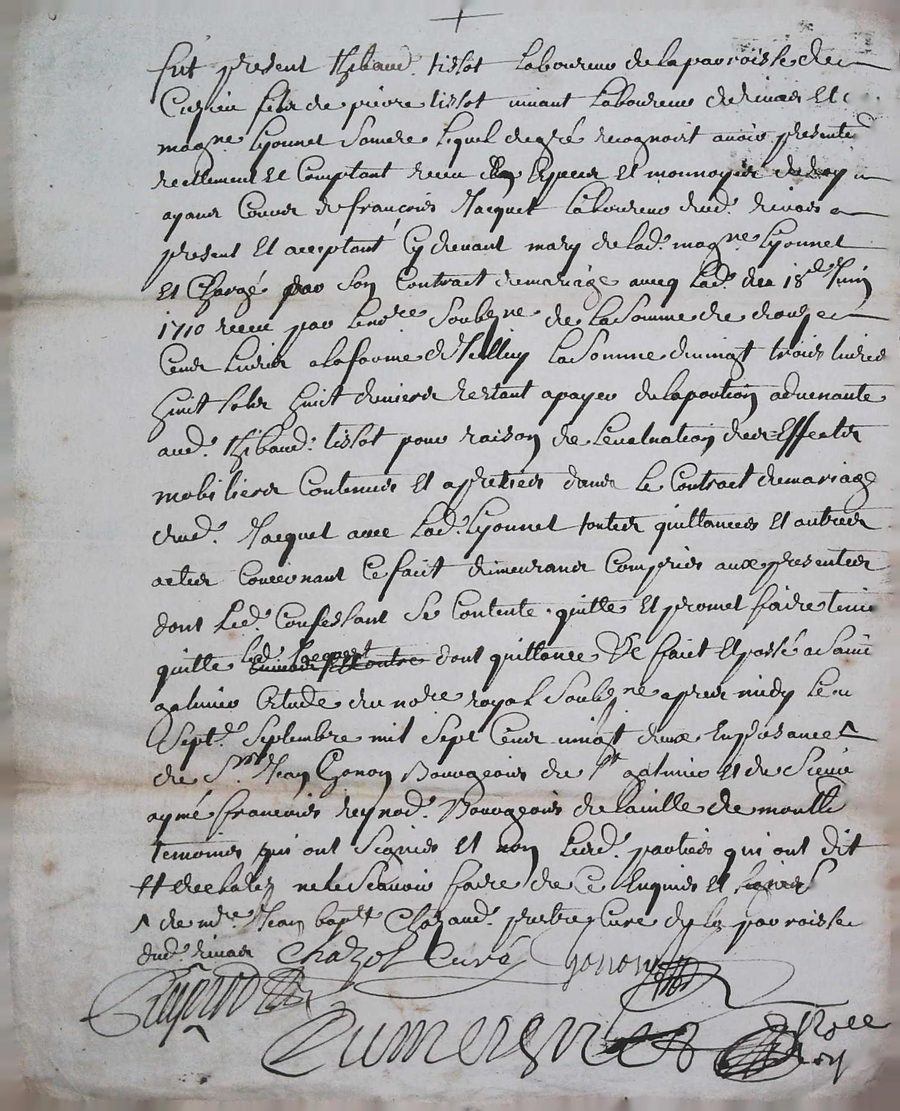 fut present thibaud tissot laboureur de la parroisse de
Cuzieu fils de pierre tissot vivant laboureur de rivas Et
magne Lyonnet Sa mere lequel de gré recognoist avoir presente
reellement Et Comptant receu En Especes Et monnoyes de Roy
ayans Cours de françois Jacquet laboureur dud. rivas
present Et acceptant Cy devant mary de lad. magne Lyonnet
Et Chargé par son Contract de mariage avecq lad. du 18e Juin
1710 receu par le nore Soubsné de la Somme de
Cens livres a la forme la Somme de vingt trois livres
huit sols huit deniers restant a payer de la portion advenante
aud. thibaud tissot pour raison de l'evaluation des Effects
mobiliers Contenus Et apretiés dans le Contract de mariage
dud. Jacquet avec lad. Lyonnet toutes quittances Et autres
actes Concernant Ce fait demeurans Compris aux presentes
dont led. Confessant Se Contente quitte Et promet faire tenir
quitte led. Jacquet dont quittance fait Et passé a Saint
galmier Etude du nore royal Soubsné apres midy le
Sept Septembre mil Sept Cens vingt deux En presance ^
de Sr Jean Gonon Bourgeois de St galmier Et de Sieur
aymé françois reynod Bourgeois de la ville de
temoins qui ont Signés Et non lesd. parties qui ont dit
Et declarés ne le Scavoir faire de Ce Enquis Et
^ de mre Jean bapt prestre Curé de la parroisse
dud. rivas Chazol Curé Gonon
Reynod
Dumergue